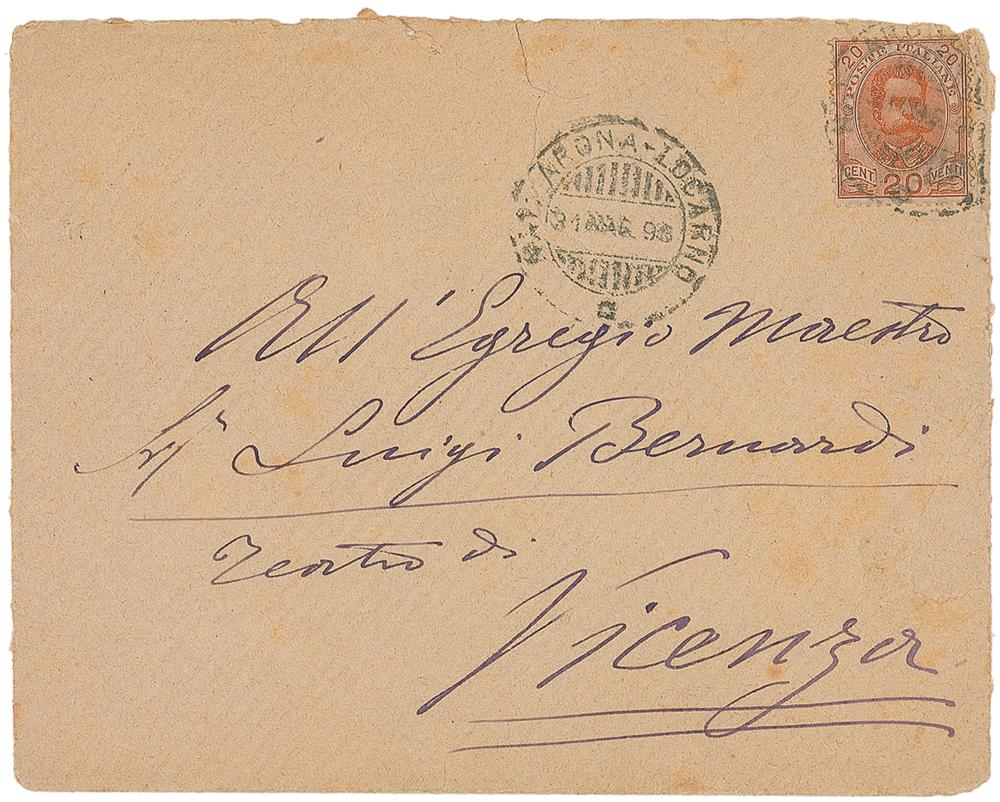 20 20
POSTE ITALIANE
CENT. 20 VENTI
ARONA-LOCARNO
31 MAG. 98
All' Egregio Maestro
Sigr Luigi Bernardi
Teatro di
Vicenza